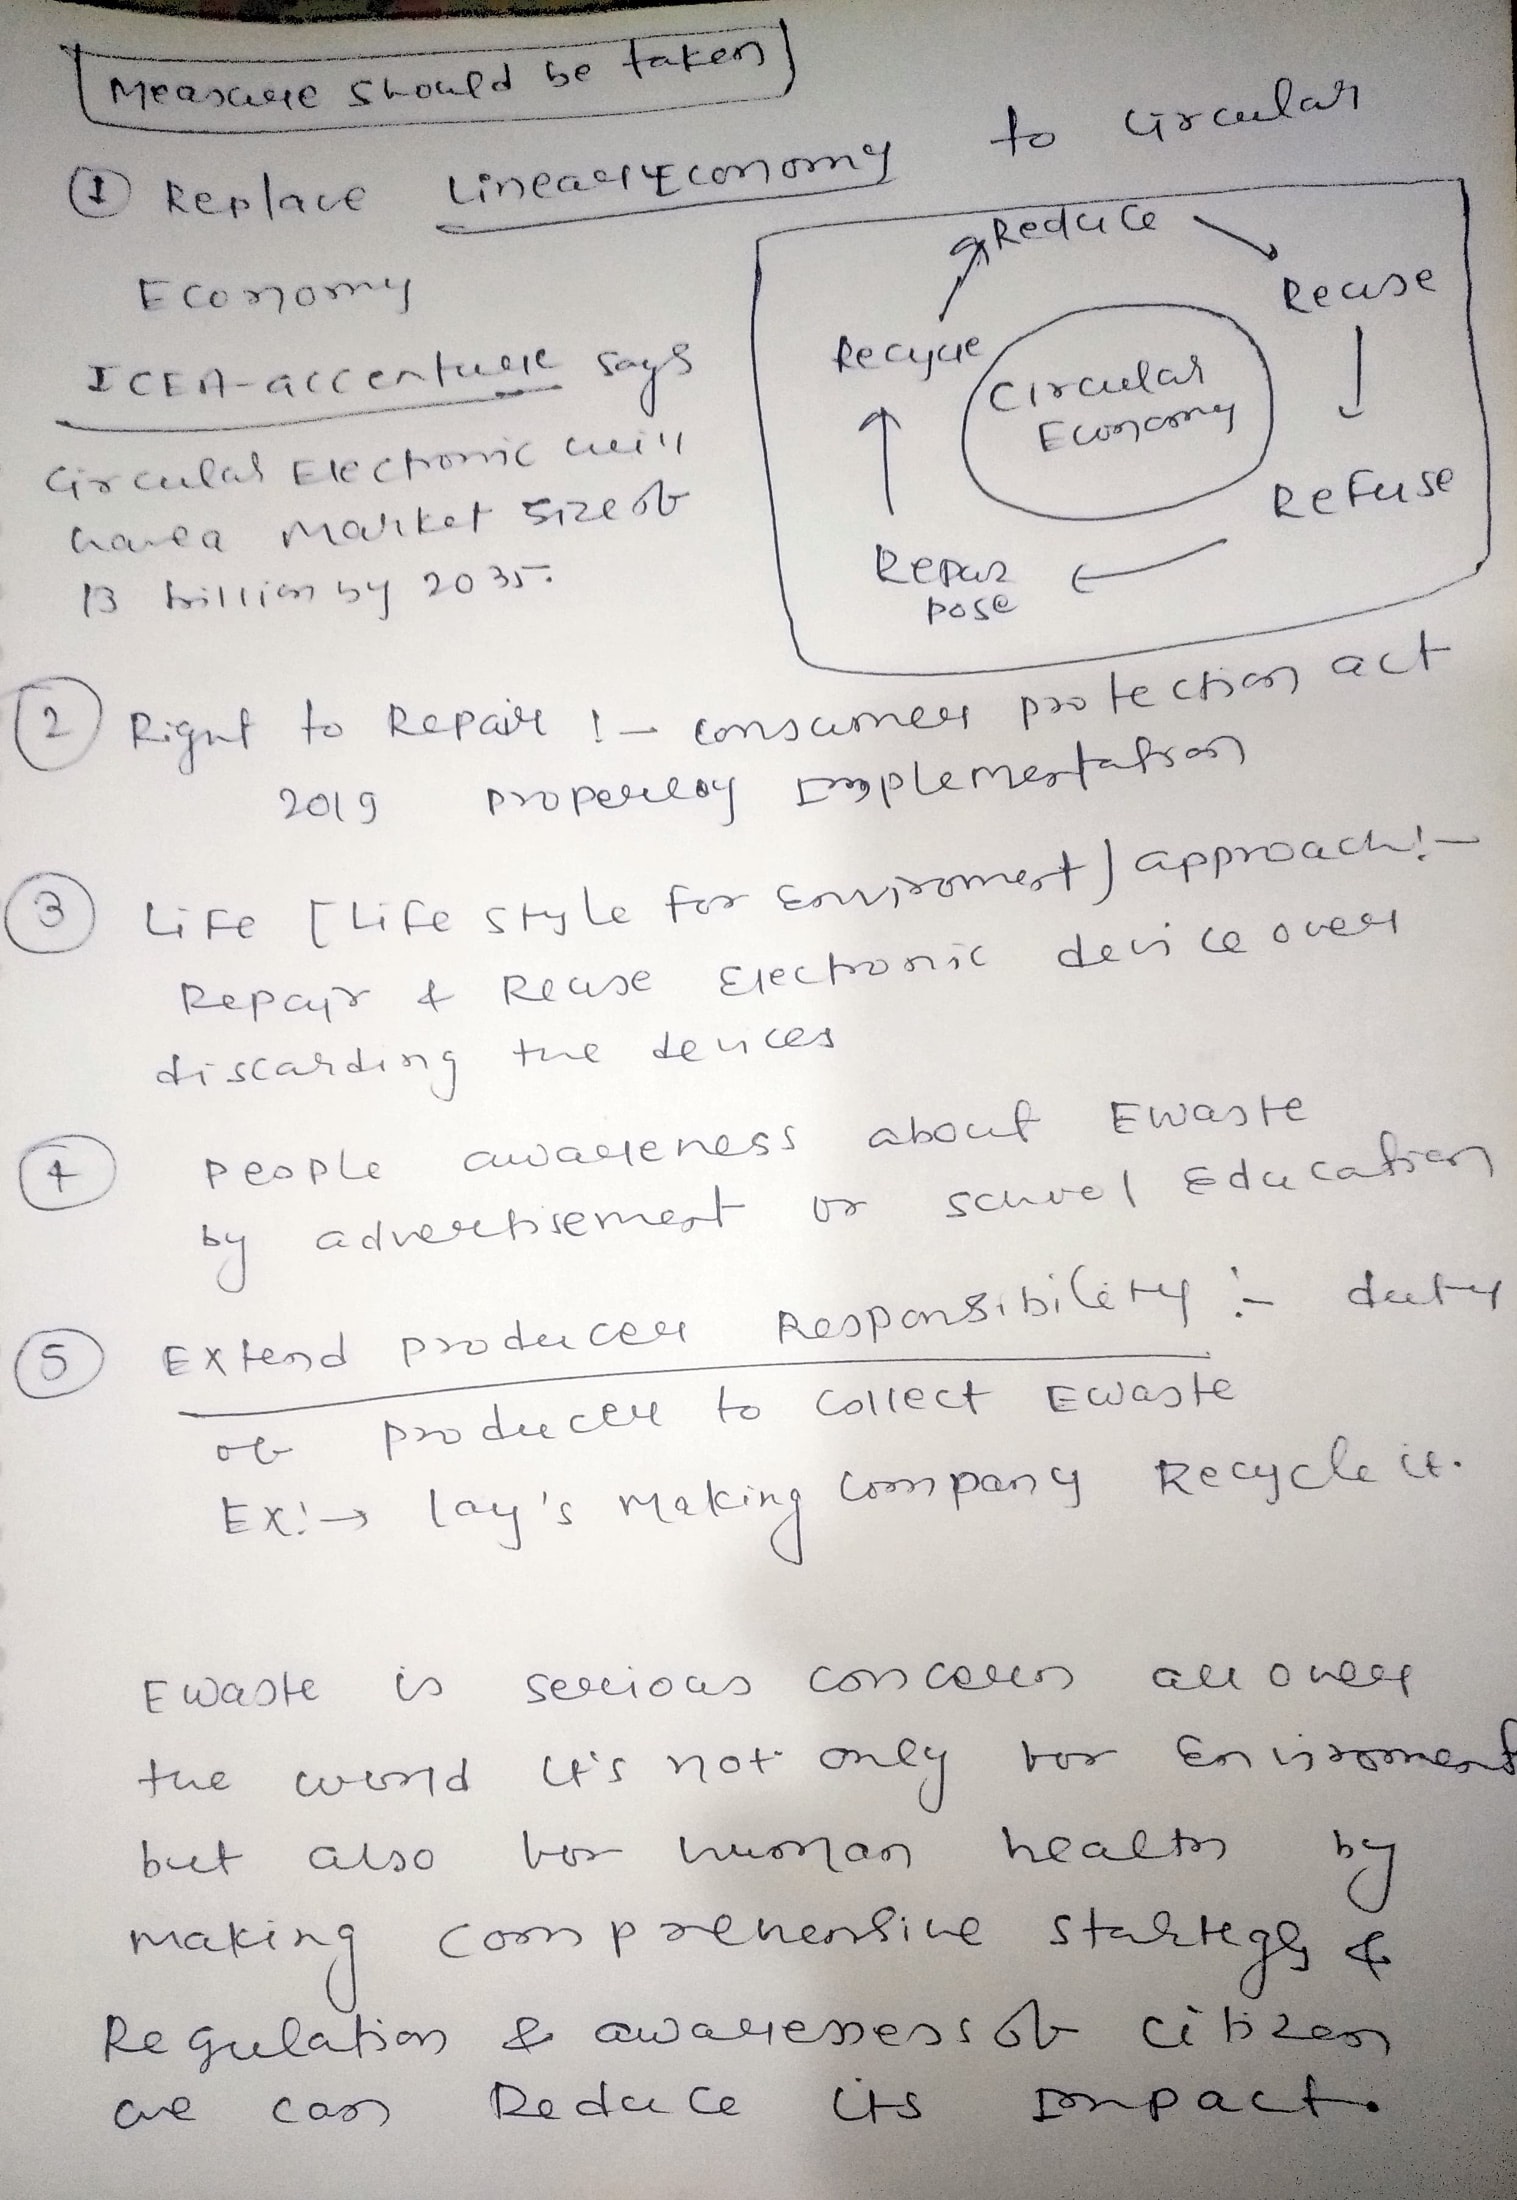 Measure should be taken
① Replace Linear Economy to Circular
Economy
ICEA-accenture says
Circular Electronic will
have a market size of
13 billion by 2035.
Reduce
Reuse
Refuse
Repur
pose
Recycle
Circular
Economy
② Right to Repair :- consumer protection act
2019 properloy Implementation
③ Life [Life style for Enviroment] approach :-
Repair & Reuse Electronic device over
discarding the devices
④ people awareness about Ewaste
by advertisement or school Education
⑤ Extend producer Responsibility :- duty
of producer to collect Ewaste
Ex:→ lay's making company Recycle it.
Ewaste is serious concern all over
the world it's not only for Enviroment
but also for human health by
making comprehensive startegy &
Regulation & awareness of citizen
we can Reduce its Impact.